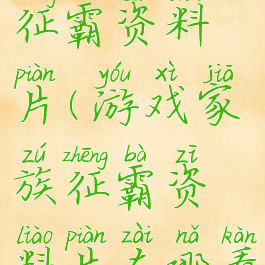 征霸资料
piàn yóu xì jiā
片(游戏家
zú zhēng bà zī
族征霸资
liào piàn zài nǎ kàn
料片在哪看